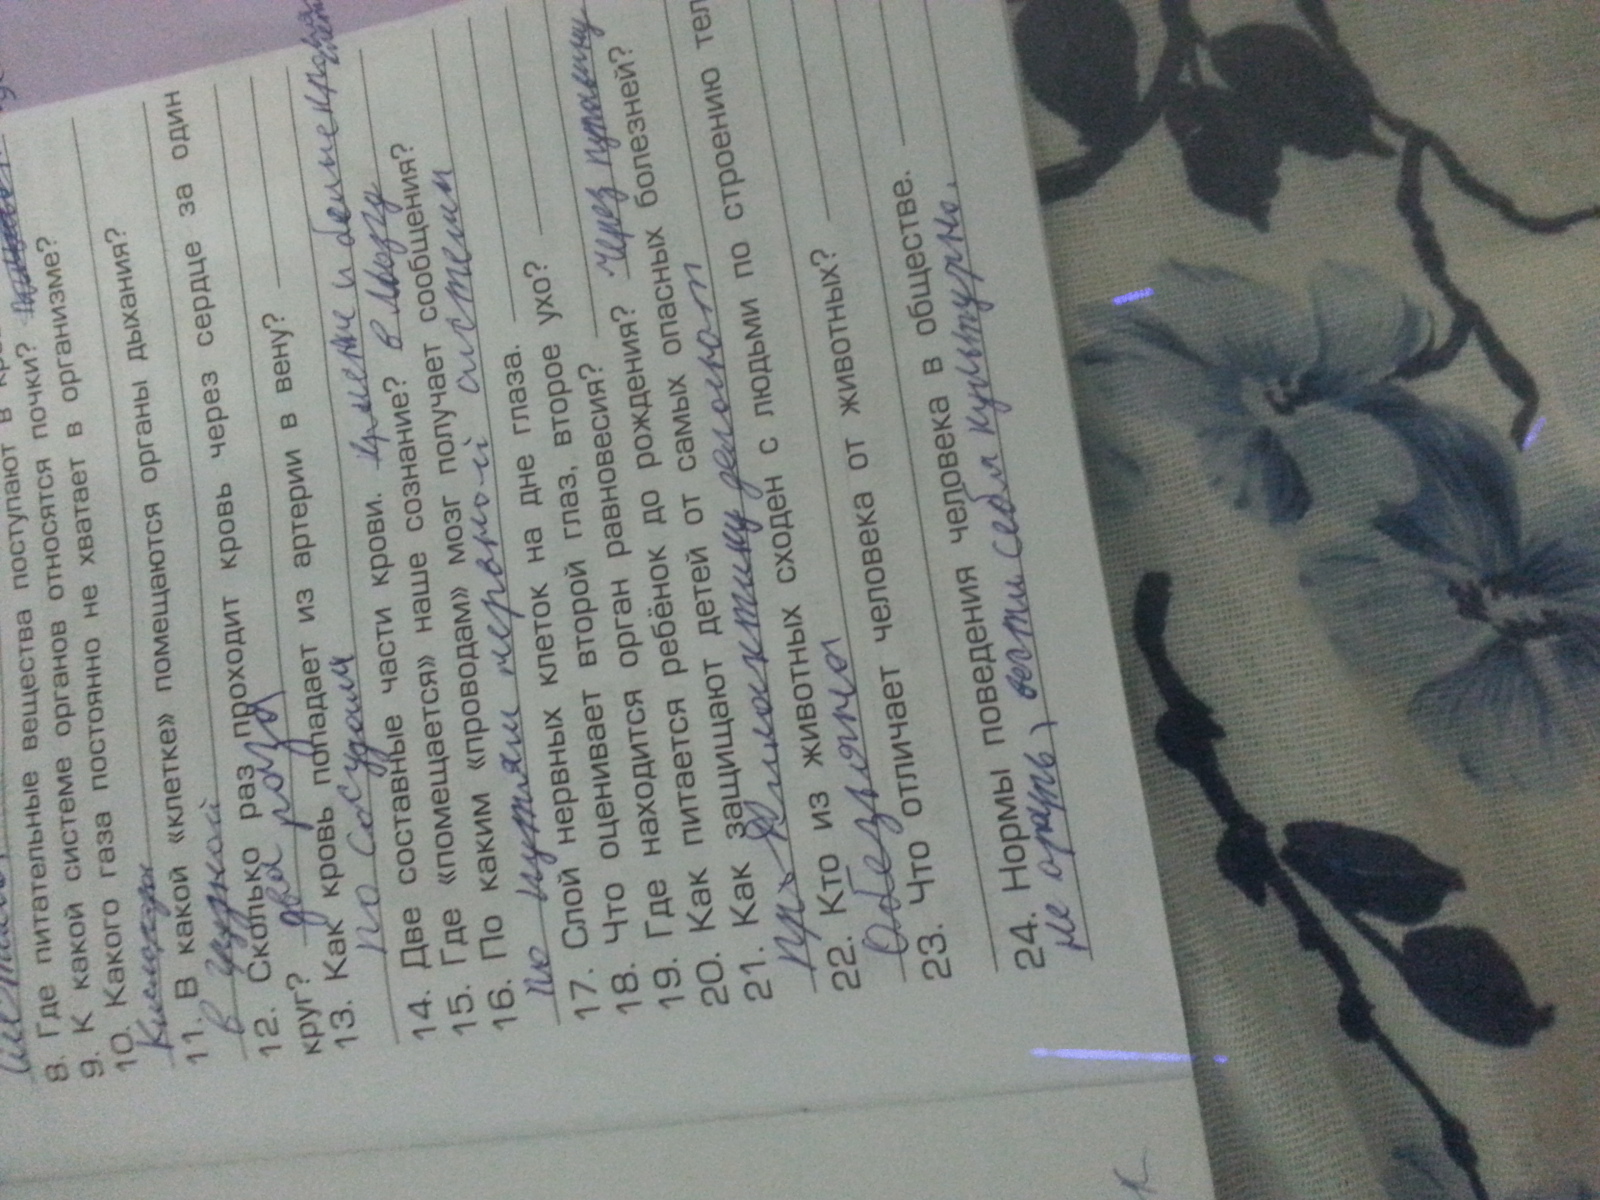 8. Где питательные вещества поступают в
9. К какой системе органов относятся почки?
10. Какого газа постоянно не хватает в организме?
Кислород
11. В какой «клетке» помещаются органы дыхания?
В грудной
12. Сколько раз проходит кровь через сердце за один
круг? два раза
13. Как кровь попадает из артерии в вену?
по сосудам
14. Две составные части крови.
15. Где «помещается» наше сознание? в мозгу
16. По каким «проводам» мозг получает сообщения?
По путям нервной системы
17. Слой нервных клеток на дне глаза.
18. Что оценивает второй глаз, второе ухо?
19. Где находится орган равновесия?
20. Как питается ребёнок до рождения? через
21. Как защищают детей от самых опасных болезней?
делают
22. Кто из животных сходен с людьми по строению
Обезьяна
23. Что отличает человека от животных?
24. Нормы поведения человека в обществе.
не орать, вести себя культурно.